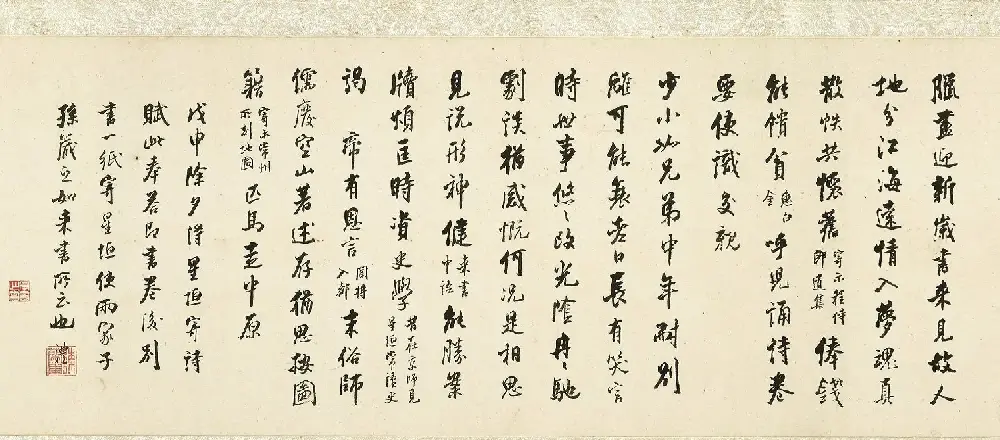 臘盡迎新歲書來見故人
地分江海遠情入夢魂真
散帙共懷舊寄示程侍郎遺集俸錢
能餉貧惠白金呼兒誦詩卷
要使識交親
少小如兄弟中年耐別
離可能無老日長有笑言
時世事悠悠改光陰冉冉馳
劇談猶感慨何況是相思
見說形神健來書中語能勝案
牘煩匡時資史學昔在京師見星垣常讀史
謁帝有恩言聞將入都末俗師
儒廢空山著述存猶思按圖
籍寄示常州所刻地圖匹馬走中原
戊申除夕得星垣寄詩
賦此奉答即書卷後別
書一紙寄星垣使兩家子
孫藏之如來書所云也